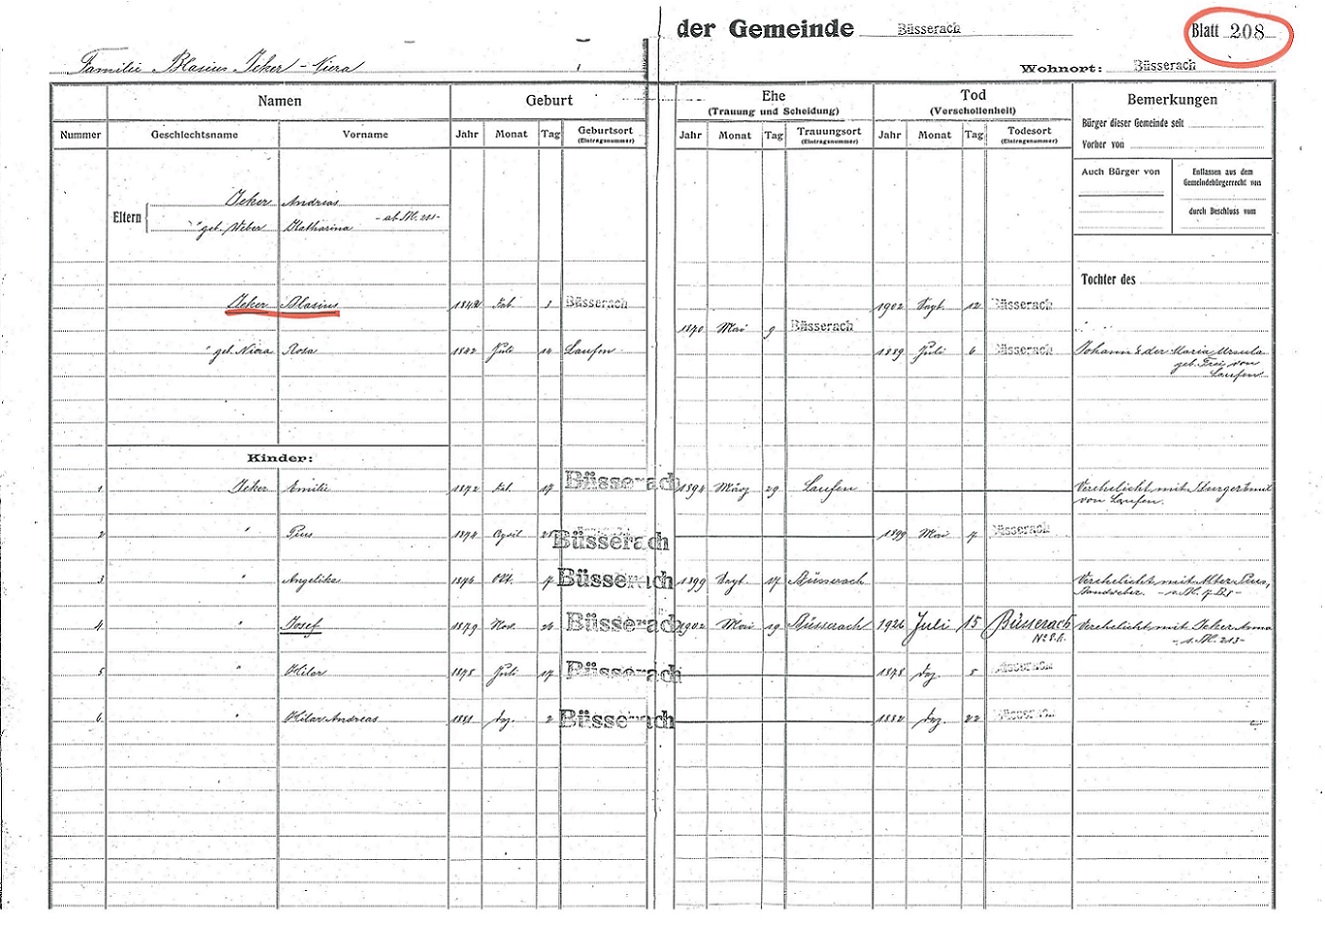 der Gemeinde Büsserach Blatt 208
Familie Blasius Jeker - Niera
Wohnort: Büsserach
Namen Geburt Ehe (Trauung und Scheidung) Tod (Verschollenheit) Bemerkungen
Nummer Geschlechtsname Vorname Jahr Monat Tag Geburtsort (Eintragsnummer) Jahr Monat Tag Trauungsort (Eintragsnummer) Jahr Monat Tag Todesort (Eintragsnummer)
Bürger dieser Gemeinde seit
Vorher von
Auch Bürger von Entlassen aus dem Gemeindebürgerrecht von
durch Beschluss vom
Eltern Jeker Andreas
" geb. Weber Katharina
Tochter des
Jeker Blasius Büsserach 1902 Sept. 12 Büsserach
1870 Mai 9 Büsserach
" geb. Niera Rosa 1842 Juli 14 Laufen 1889 Juli 6 Büsserach Johann & der Maria Ursula
geb. Frei, von
Laufen
Kinder:
1 Jeker Emilie 1872 17 Büsserach März 29 Laufen Verehelicht mit
von Laufen.
2 " Pius April Büsserach 1899 Mai 7 Büsserach
3 " Angelika 1876 Okt. 7 Büsserach 1899 Sept. 17 Büsserach Verehelicht mit Alter Pius,
Bandweber.
4 " Josef 1879 Nov. 26 Büsserach 1902 Mai 19 Büsserach 1926 Juli 15 Büsserach Verehelicht mit Jeker Anna
5 " Hilar 1878 Juli 17 Büsserach 1878 Dez. 5 Büsserach
6 " Hilar Andreas 1881 Dez. 2 Büsserach 1882 Dez. 22 Büsserach